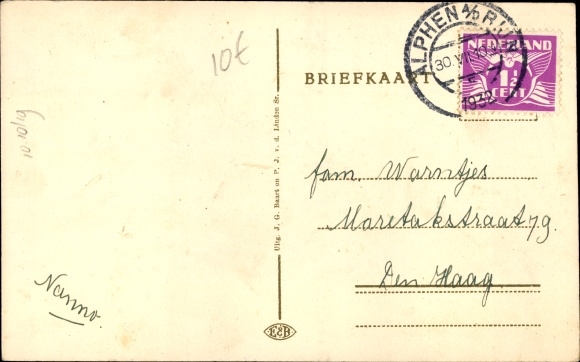 10€
BRIEFKAART
ALPHEN A/D RIJN
30.VII
1932
NEDERLAND
1½
CENT
10 10/19
fam. Warntjes
Maretakstraat 79.
Den Haag
Nanno.
Uitg. J. G. Baart en P. J. v. d. Linden Sr.
E&B